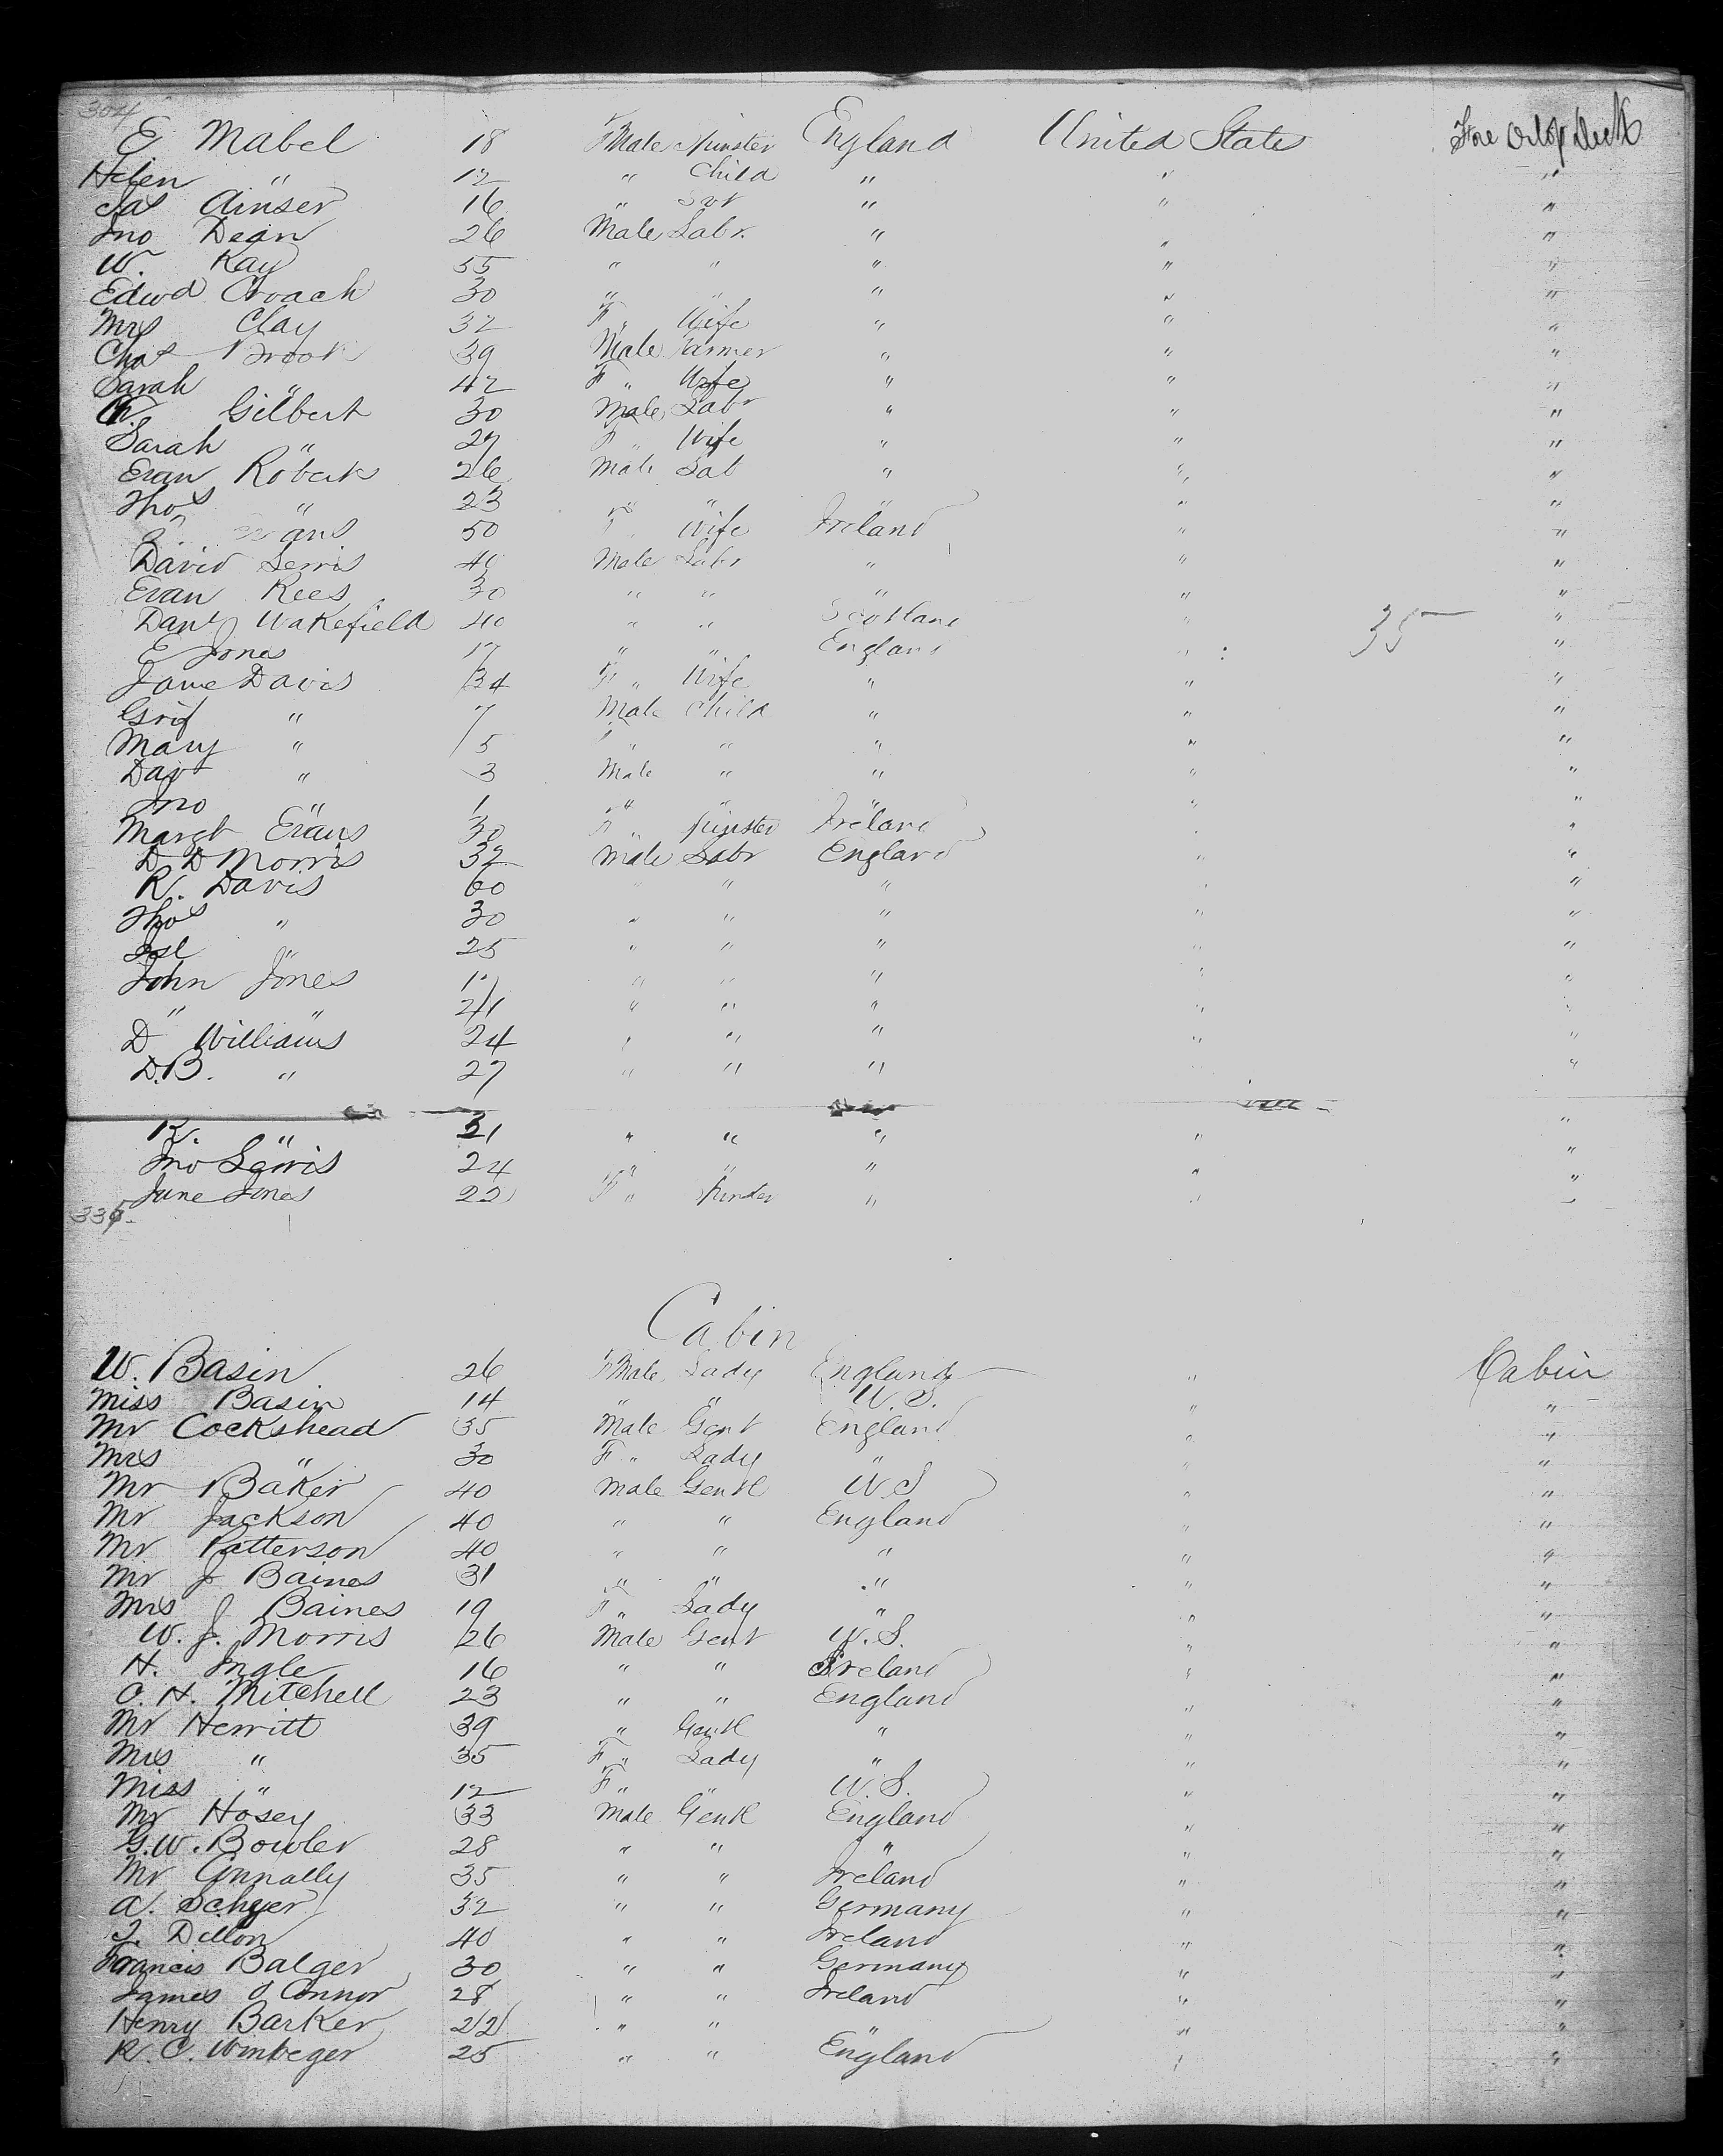 304
E Mabel 18 FMale Spinster England United States Fore Orlop Deck
Helen " 12 " Child " " "
Jas Ainser 16 " " " "
Jno Dean 26 Male Labr. " " "
W. Kay 55 " " " " "
Edwd Croach 30 " " " " "
Mrs Clay 32 F " Wife " " "
Chas Brook 39 Male Farmer " " "
Sarah " 42 F " Wife " " "
Gilbert 30 Male Labr " " "
Sarah " 27 F " Wife " " "
Evan Roberts 26 Male Lab " " "
Thos " 23 " " " "
50 F " Wife Ireland " "
David Lewis 40 Male Labr " " "
Evan Rees 30 " " " " "
Danl Wakefield 40 " " Scotland " 35 "
E Jones 17 " " England " "
Jane Davis 34 F " Wife " " "
Grif " 7 Male Child " " "
Mary " 5 F " " " " "
Dav " 3 Male " " " "
Jno " 1 " " " " "
Margt Evans 30 F " Spinster Ireland " "
D D Morris 32 Male Labr England " "
R. Davis 60 " " " " "
Thos " 30 " " " " "
" 25 " " " " "
John Jones " " " " "
" " 21 " " " " "
D Williams 24 " " " " "
D.B. " 27 " " " " "
R. " 21 " " " " "
Jno Lewis 24 " " " " "
Jane Jones 22 F " " " "
Cabin
W. Basin 26 FMale Lady England " Cabin
Miss Basin 14 " " U.S. " "
Mr Cockshead 35 Male Gent England " "
Mrs " 30 F " Lady " " "
Mr Baker 40 Male Gentl U.S " "
Mr Jackson 40 " " England " "
Mr Patterson 40 " " " " "
Mr J Baines 31 " " " " "
Mrs J Baines 19 F " Lady " " "
W. J. Morris 26 Male Gent U.S. " "
H. Ingle 16 " " Ireland " "
C. H. Mitchell 23 " " England " "
Mr Hewitt 39 " Gentl " " "
Mrs " 35 F " Lady " " "
Miss " 12 F " " U.S. " "
Mr Hosey 33 Male Gentl England " "
G.W. Bowler 28 " " " " "
Mr Connally 35 " " Ireland " "
A. Schyer 32 " " Germany " "
Dillon 40 " " Ireland " "
Francis Balger 30 " " Germany " "
James O Connor 28 " " Ireland " "
Henry Barker 22 " " " "
R. C. Winbeger 25 " " England " "